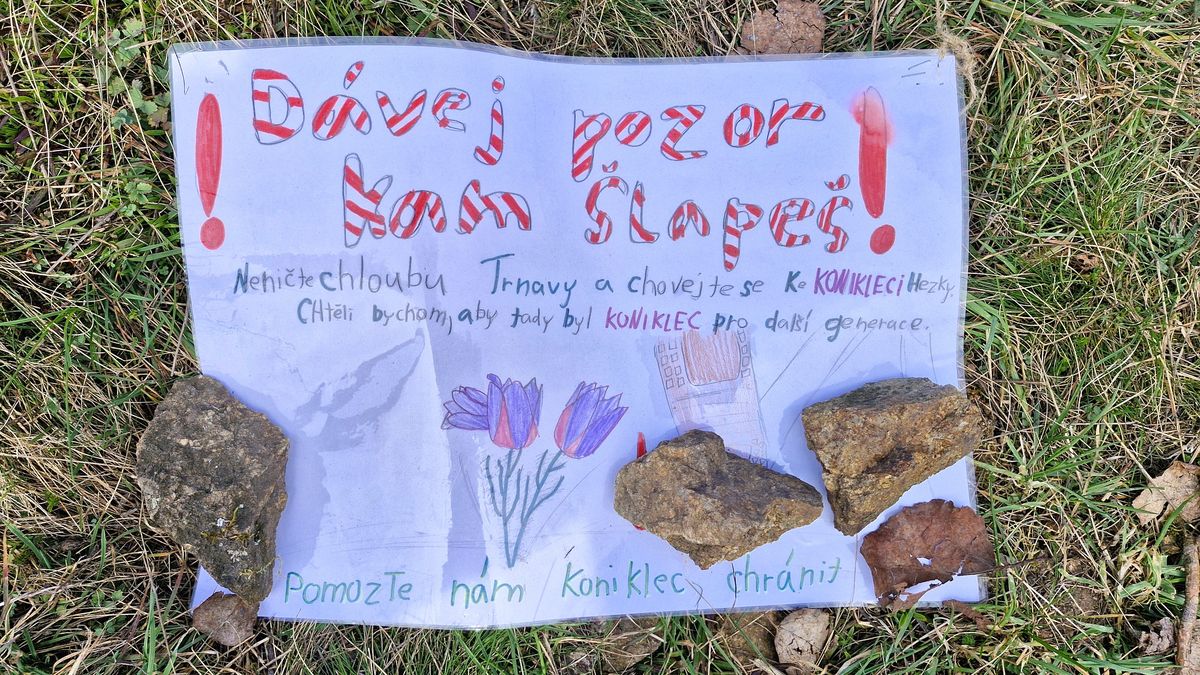 ! Dávej pozor !
kam šlapeš
Neničte chloubu Trnavy a chovejte se ke KONIKLECI Hezky.
CHtěli bychom, aby tady byl KONIKLEC pro další generace.
Pomozte nám koniklec chránit